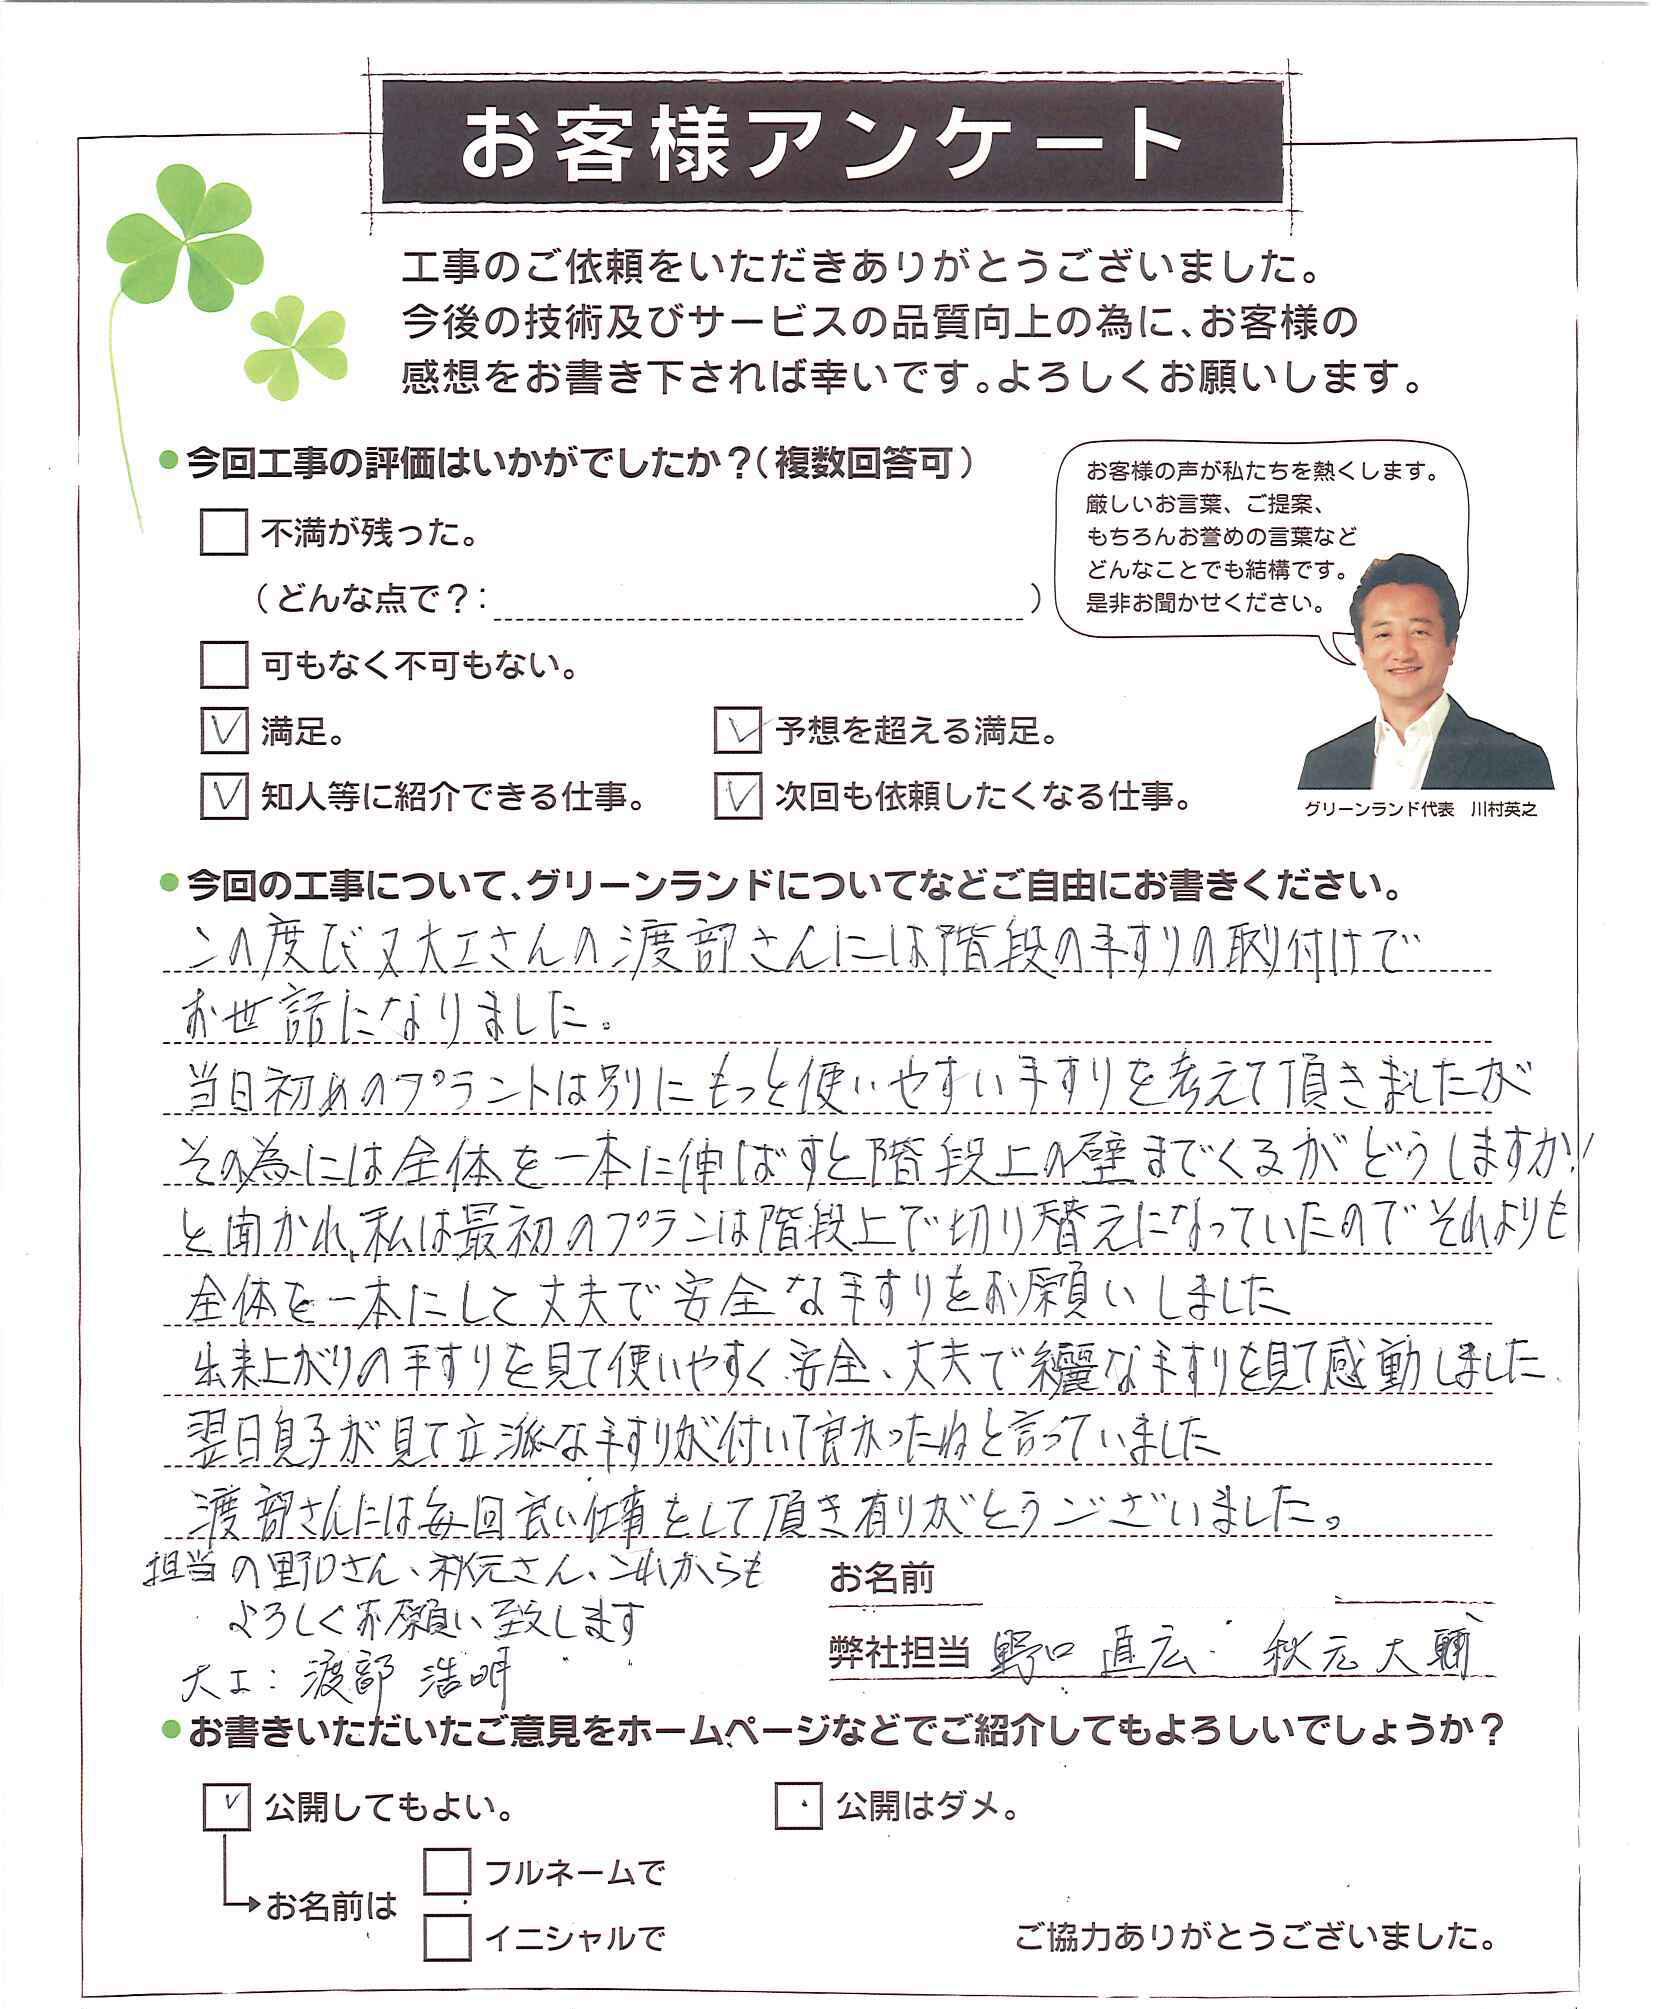 お客様アンケート
工事のご依頼をいただきありがとうございました。
今後の技術及びサービスの品質向上の為に、お客様の
感想をお書き下されば幸いです。よろしくお願いします。
今回工事の評価はいかがでしたか？（複数回答可）
不満が残った。
（どんな点で？：　）
可もなく不可もない。
満足。
予想を超える満足。
知人等に紹介できる仕事。
次回も依頼したくなる仕事。
お客様の声が私たちを熱くします。
厳しいお言葉、ご提案、
もちろんお誉めの言葉など
どんなことでも結構です。
是非お聞かせください。
グリーンランド代表　川村英之
今回の工事について、グリーンランドについてなどご自由にお書きください。
この度び又大工さんの渡部さんには階段の手すりの取り付けで
お世話になりました。
当日初めのプラントは別にもっと使いやすい手すりを考えて頂きましたが
その為には全体を一本に伸ばすと階段上の壁までくるがどうしますか!
と聞かれ、私は最初のプランは階段上で切り替えになっていたのでそれよりも
全体を一本にして丈夫で安全な手すりをお願いしました
出来上がりの手すりを見て使いやすく、安全、丈夫で綺麗な手すりを見て感動しました
翌日息子が見て立派な手すりが付いて良かったねと言っていました
渡部さんには毎回良い仕事をして頂き有りがとうございました。
担当の野口さん、秋元さん、これからも
よろしくお願い致します
大工：渡部 浩明
お名前
弊社担当 野口 直広 秋元 大輔
お書きいただいたご意見をホームページなどでご紹介してもよろしいでしょうか？
公開してもよい。
公開はダメ。
お名前は
フルネームで
イニシャルで
ご協力ありがとうございました。